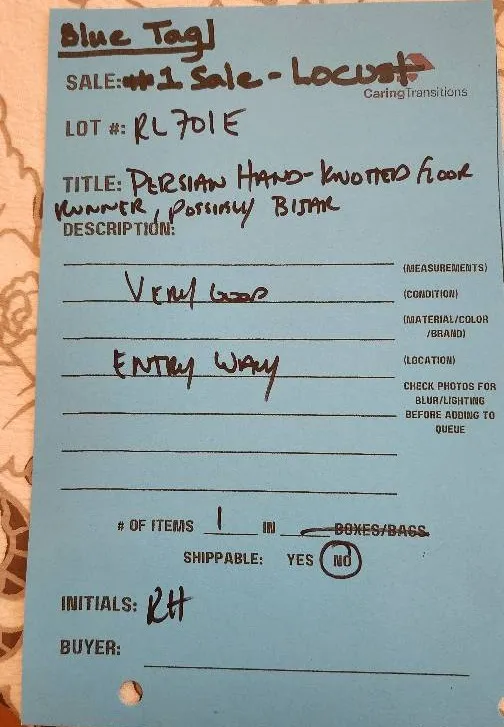 Blue Tag
SALE: #1 Sale - Locust
CaringTransitions
LOT #: RL701E
TITLE: PERSIAN HAND-KNOTTED FLOOR
RUNNER, POSSIBLY BIJAR
DESCRIPTION:
(MEASUREMENTS)
VERY GOOD (CONDITION)
(MATERIAL/COLOR
/BRAND)
ENTRY WAY (LOCATION)
CHECK PHOTOS FOR
BLUR/LIGHTING
BEFORE ADDING TO
QUEUE
# OF ITEMS 1 IN BOXES/BAGS
SHIPPABLE: YES NO
INITIALS: RH
BUYER: